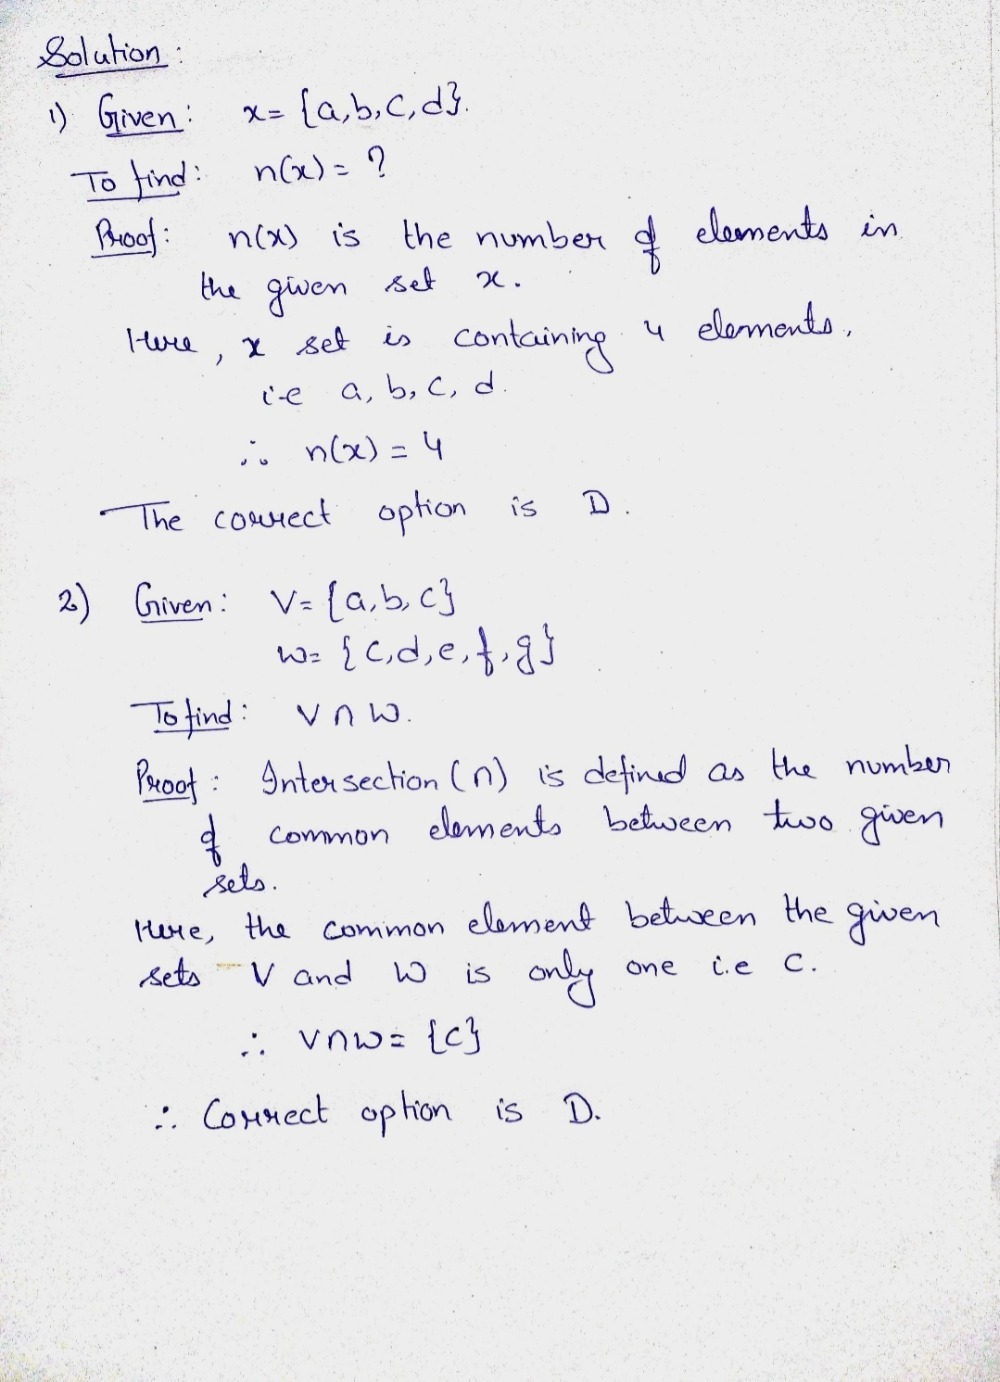 Solution :
1) Given : x = {a, b, c, d}.
To find : n(x) = ?
Proof : n(x) is the number of elements in
the given set x.
Here, x set is containing 4 elements,
i.e a, b, c, d.
∴ n(x) = 4
The correct option is D.
2) Given : V = {a, b, c}
W = {c, d, e, f, g}
To find : V ∩ W.
Proof : Intersection (∩) is defined as the number
of common elements between two given
sets.
Here, the common element between the given
sets V and W is only one i.e c.
∴ V ∩ W = {c}
∴ Correct option is D.